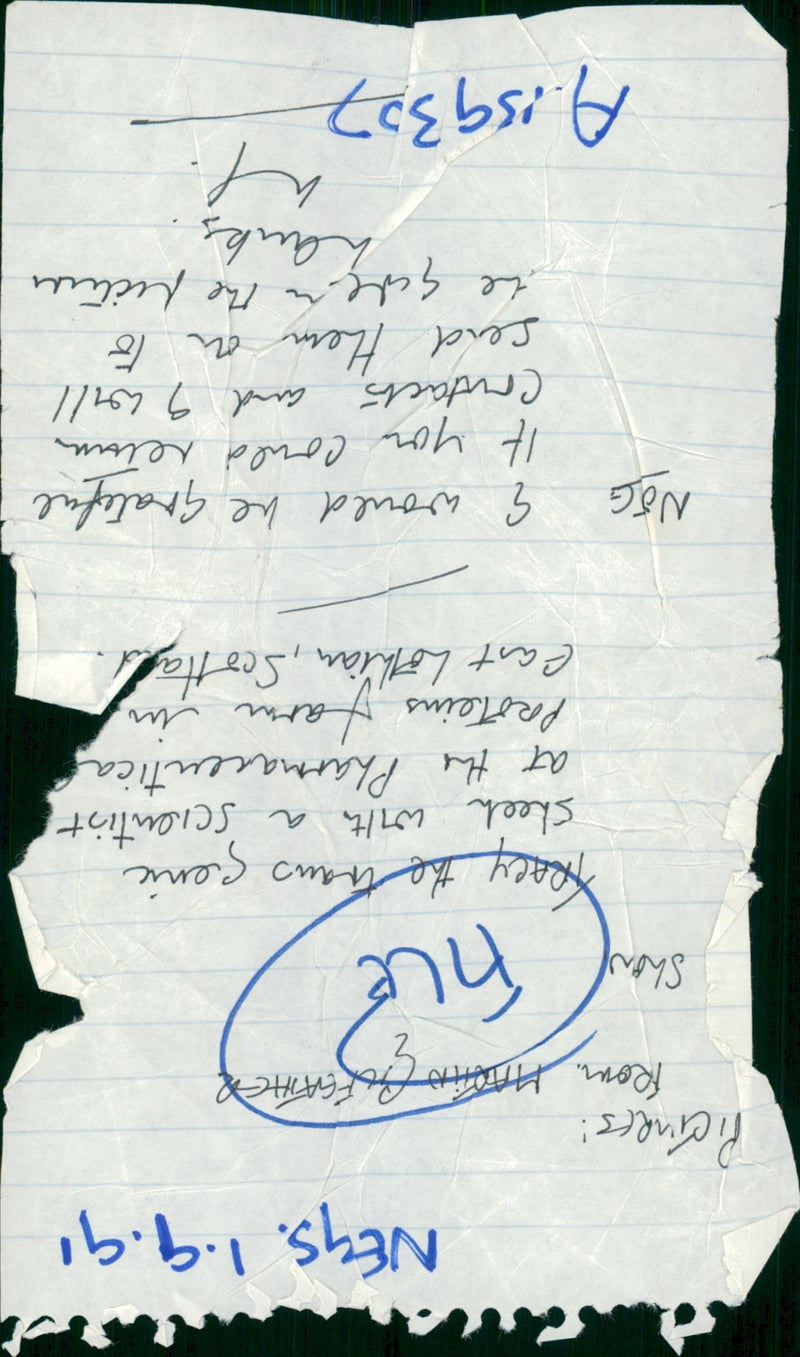 NEgs. 1.9.91
PICTURES:
from. MARTIN GILFEATHER
FILE
Show
TRACY the trans genic
sheep with a scientist
at the Pharmaceutical
Proteins farm in
East Lothian, Scotland.
NOTE I would be grateful
If you could return
contacts and I will
send them on to
be given the picture
Thanks
A.159307